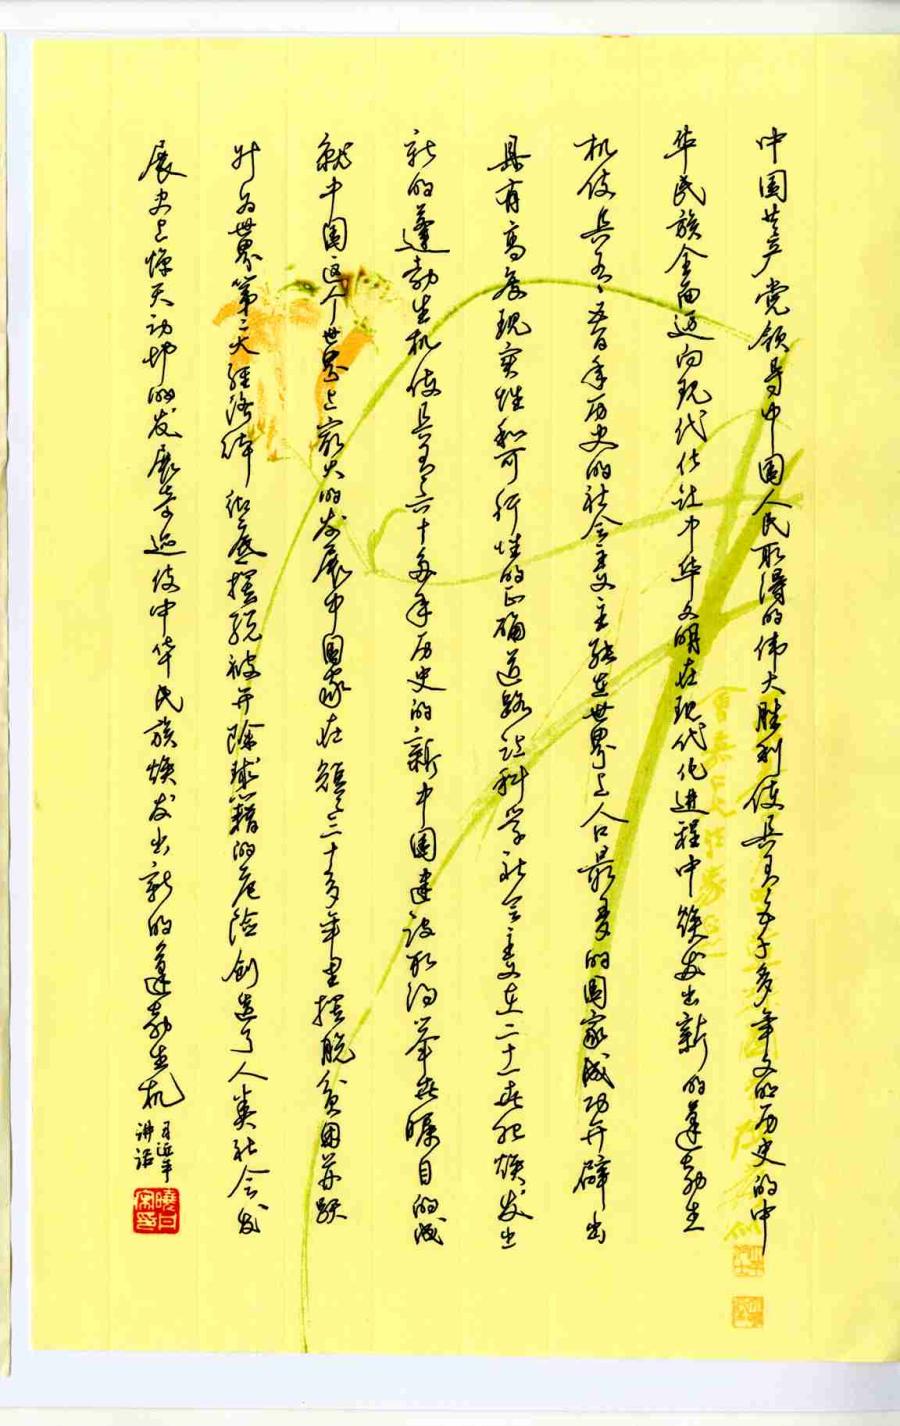 中国共产党领导中国人民取得的伟大胜利使具有五千多年文明历史的中
华民族全面迈向现代化让中华文明在现代化进程中焕发出新的蓬勃生
机使具有五百年历史的社会主义主张在世界上人口最多的国家成功开辟出
具有高度现实性和可行性的正确道路让科学社会主义在二十一世纪焕发出
新的蓬勃生机使具有六十多年历史的新中国建设取得举世瞩目的成
就中国这个世界上最大的发展中国家在短短三十多年里摆脱贫困并跃
升为世界第二大经济体彻底摆脱被开除球籍的危险创造了人类社会发
展史上惊天动地的发展奇迹使中华民族焕发出新的蓬勃生机
习近平
讲话